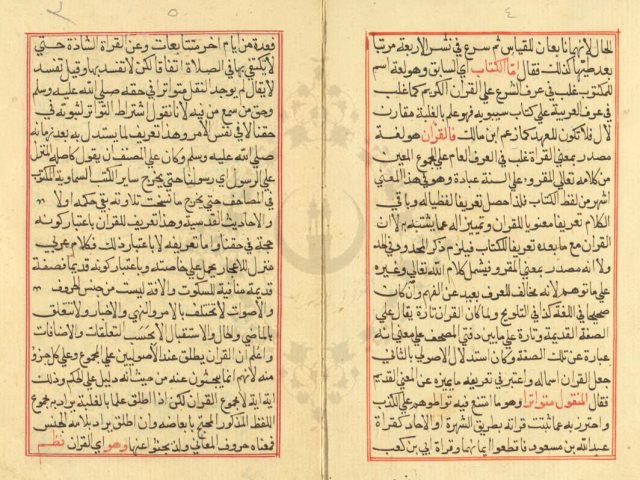 ٤
لحال لانهما تابعان للقياس ثم شرع في نشر الاربعة مرتبا
بعد طيها كذلك فقال اما الكتاب اي السابق وهو لغة اسم
للمكتوب غلب في عرف الشرع على القران الكريم كما غلب
في عرف العربية على كتاب سيبويه فهو علم بالغلبة مقارن
لال فلا تكون للعهد كما زعم ابن مالك فالقران هو لغة
مصدر بمعنى القراة غلب في العرف العام على المجموع المعين
من كلامه تعالى المقروء على السنة عباده وهو في هذا المعنى
اشهر من لفظ الكتاب فلذا جعل تعريفا لفظيا له وباقي
الكلام تعريفا معنويا للقران وتمييزا له عما يشتبه به لا ان
القران مع ما بعده تعريفا للكتاب فيلزم ذكر المحدود في الحد
ولا انه مصدر بمعنى المقرو فيشمل كلام الله تعالى وغيره
على ما توهم لانه مخالف للعرف بعيد عن الفهم وان كان
صحيحا في اللغة كذا في التلويح ولما كان القران تارة يقال على
الصفة القديمة وتارة على ما بين دفتي المصحف على معنى انه
عبارة عن تلك الصفة وكان استدلال الاصولي بالثاني
جعل القران اسما له واعتبر في تعريفه ما يميزه عن المعنى القديم
فقال المنقول متواترا وهو ما امتنع فيه تواطوهم على الكذب
واحترز به عما ثبتت قرانه بطريق الشهرة او الاحاد كقراة
عبد الله بن مسعود فاقطعوا ايمانهما وقراة ابي بن كعب
٥
فعدة من ايام اخر متتابعات وعن القراة الشاذة حتى
لا يكتفي بها في الصلاة اتفاقا لكن لا تفسد بها وقيل تفسد
لا يقال لم يوجد النقل متواترا في حقه صلى الله عليه وسلم
وحق من سمع من فيه لانا نقول اشتراط التواتر لثبوته في
حقنا لا في نفس الامر وهذا تعريف لما يستدل به بعد زمانه
صلى الله عليه وسلم وكان على المصنف ان يقول كاصله المنزل
على الرسول اي رسولنا حتى يخرج ساير الكتب السماوية المكتوب
في المصاحف حتى يخرج ما نسخت تلاوته بقي حكمه اولا
والاحاديث القدسية وهذا تعريف للقران باعتبار كونه
حجة في حقنا واما تعريفه لا باعتبار ذلك فكلام عربي
منزل للاعجاز بما على خاصته وباعتبار كونه قديما فصفة
قديمة منافية للسكوت والافة ليست من جنس الحروف
والاصوات لا تختلف بالامر والنهي والاخبار ولا تتعلق
بالماضي والحال والاستقبال لا بحسب التعلقات والاضافات
واعلم ان القران يطلق عند الاصوليين على المجموع وعلى كل جزو
منه لانهم انما يبحثون عنه من حيث انه دليل على الحكم وذلك
اية اية لا مجموع القران لكن اذا اطلق علما بالغلبة يراد به مجموع
اللفظ المذكور المحتج بابعاضه وان اطلق يراد بلامه الجنس
فمعناه حروف المعاني ولذ بحثوا عنها وهو اي القران نظم